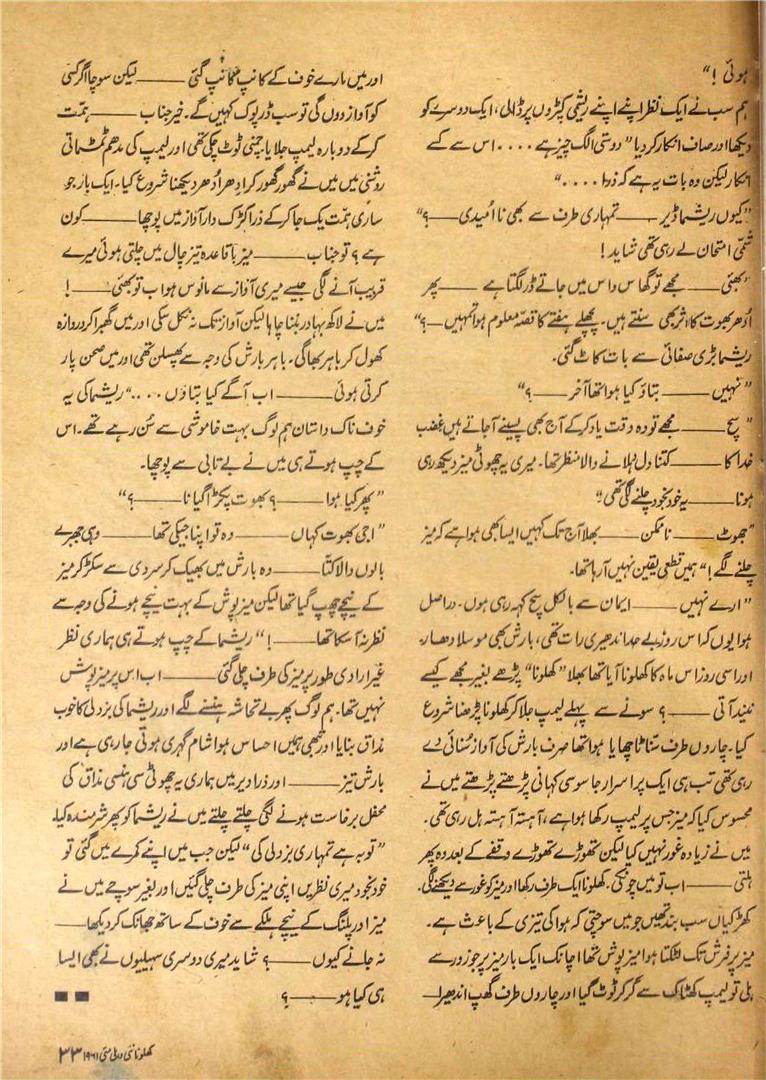 ہوئی !“
ہم سب نے ایک نظر اپنے اپنے ریشمی کپڑوں پر ڈالی، ایک دوسرے کو
دیکھا اور صاف انکار کر دیا ”دوستی الگ چیز ہے .... اس سے کسے
انکار لیکن وہ بات یہ ہے کہ ذرا ....“
”کیوں ریشما ڈیر —— تمہاری طرف سے بھی نا اُمیدی —— ؟“
شمّی امتحان لے رہی تھی شاید !
”بھئی —— مجھے تو گھاس واس میں جاتے ڈر لگتا ہے —— پھر
اُدھر بھوت کا اثر بھی سنتے ہیں۔ پچھلے ہفتے کا قصّہ معلوم ہوا تمہیں —— ؟“
ریشما بڑی صفائی سے بات کاٹ گئی۔
”نہیں —— بتاؤ کیا ہوا تھا آخر —— ؟“
”سچ —— مجھے تو وہ وقت یاد کر کے آج بھی پسینے آ جاتے ہیں غضب
خدا کا —— کتنا دل ہلانے والا منظر تھا۔ میری یہ چھوٹی میز دیکھ رہی
ہونا —— یہ خود بخود چلنے لگی تھی۔“
”جھوٹ —— ناممکن —— بھلا آج تک کہیں ایسا بھی ہوا ہے کہ میز
چلنے لگے !“ ہمیں قطعی یقین نہیں آ رہا تھا۔
”ارے نہیں —— ایمان سے بالکل سچ کہہ رہی ہوں۔ دراصل
ہوا یوں کہ اس روز بے حد اندھیری رات تھی، بارش بھی موسلا دھار۔
اور اسی روز اس ماہ کا کھلونا آیا تھا بھلا ”کھلونا“ پڑھے بغیر مجھے کیسے
نیند آتی —— ؟ سونے سے پہلے لیمپ جلا کر کھلونا پڑھنا شروع
کیا۔ چاروں طرف سنّاٹا چھایا ہوا تھا صرف بارش کی آواز سُنائی دے
رہی تھی تب ہی ایک پراسرار جاسوسی کہانی پڑھتے پڑھتے میں نے
محسوس کیا کہ میز جس پر لیمپ رکھا ہوا ہے، آہستہ آہستہ ہل رہی تھی۔
میں نے زیادہ غور نہیں کیا لیکن تھوڑے تھوڑے وقفے کے بعد وہ پھر
ہلتی —— اب تو میں چونکی۔ کھلونا ایک طرف رکھا اور میز کو غور سے دیکھنے لگی۔
کھڑکیاں سب بند تھیں جو میں سوچتی کہ ہوا کی تیزی کے باعث ہے۔
میز پر فرش تک لٹکتا ہوا میز پوش تھا اچانک ایک بار میز پر جو زور سے
ہلی تو لیمپ کھٹاک سے گر کر ٹوٹ گیا اور چاروں طرف گھپ اندھیرا——
اور میں مارے خوف کے کانپ کانپ گئی —— لیکن سوچا اگر کسی
کو آواز دوں گی تو سب ڈرپوک کہیں گے۔ خیر جناب —— ہمّت
کر کے دوبارہ لیمپ جلایا۔ چمنی ٹوٹ چکی تھی اور لیمپ کی مدھم ٹمٹماتی
روشنی میں میں نے گھور گھور کر ادھر اُدھر دیکھنا شروع کیا۔ ایک بار جو
ساری ہمّت یک جا کر کے ذرا کڑک دار آواز میں پوچھا —— کون
ہے ؟ تو جناب —— میز باقاعدہ تیز چال میں چلتی ہوئی میرے
قریب آنے لگی جیسے میری آواز سے مانوس ہو اب تو بھئی —— !
میں نے لاکھ بہادر بننا چاہا لیکن آواز تک نہ نکل سکی اور میں گھبرا کر دروازہ
کھول کر باہر بھاگی۔ باہر بارش کی وجہ سے پھسلن تھی اور میں صحن پار
کرتی ہوئی —— اب آگے کیا بتاؤں ....“ ریشما کی یہ
خوف ناک داستان ہم لوگ بہت خاموشی سے سُن رہے تھے۔ اس
کے چپ ہوتے ہی میں نے بے تابی سے پوچھا۔
”پھر کیا ہوا —— ؟ بھوت پکڑا گیا نا —— ؟“
”اجی بھوت کہاں —— وہ تو اپنا جیکی تھا —— وہی جھبرے
بالوں والا کتّا —— وہ بارش میں بھیک کر سردی سے سکڑ کر میز
کے نیچے چھپ گیا تھا لیکن میز پوش کے بہت نیچے ہونے کی وجہ سے
نظر نہ آ سکا تھا —— !“ ریشما کے چپ ہوتے ہی ہماری نظر
غیر ارادی طور پر میز کی طرف چلی گئی —— اب اس پر میز پوش
نہیں تھا۔ ہم لوگ پھر بے تحاشہ ہنسنے لگے اور ریشما کی بزدلی کا خوب
مذاق بنایا اور تبھی ہمیں احساس ہوا شام گہری ہوتی جا رہی ہے اور
بارش تیز —— اور ذرا دیر میں ہماری یہ چھوٹی سی ہنسی مذاق کی
محفل برخاست ہونے لگی چلتے چلتے میں نے ریشما کو پھر شرمندہ کیا۔
”توبہ ہے تمہاری بزدلی کی“ لیکن جب میں اپنے کمرے میں گئی تو
خود بخود میری نظریں اپنی میز کی طرف چلی گئیں اور بغیر سوچے میں نے
میز اور پلنگ کے نیچے ہلکے سے خوف کے ساتھ جھانک کر دیکھا——
نہ جانے کیوں —— ؟ شاید میری دوسری سہیلیوں نے بھی ایسا
ہی کیا ہو —— ؟
کھلونا نئی دہلی مئی ۱۹۶۱ ۳۳